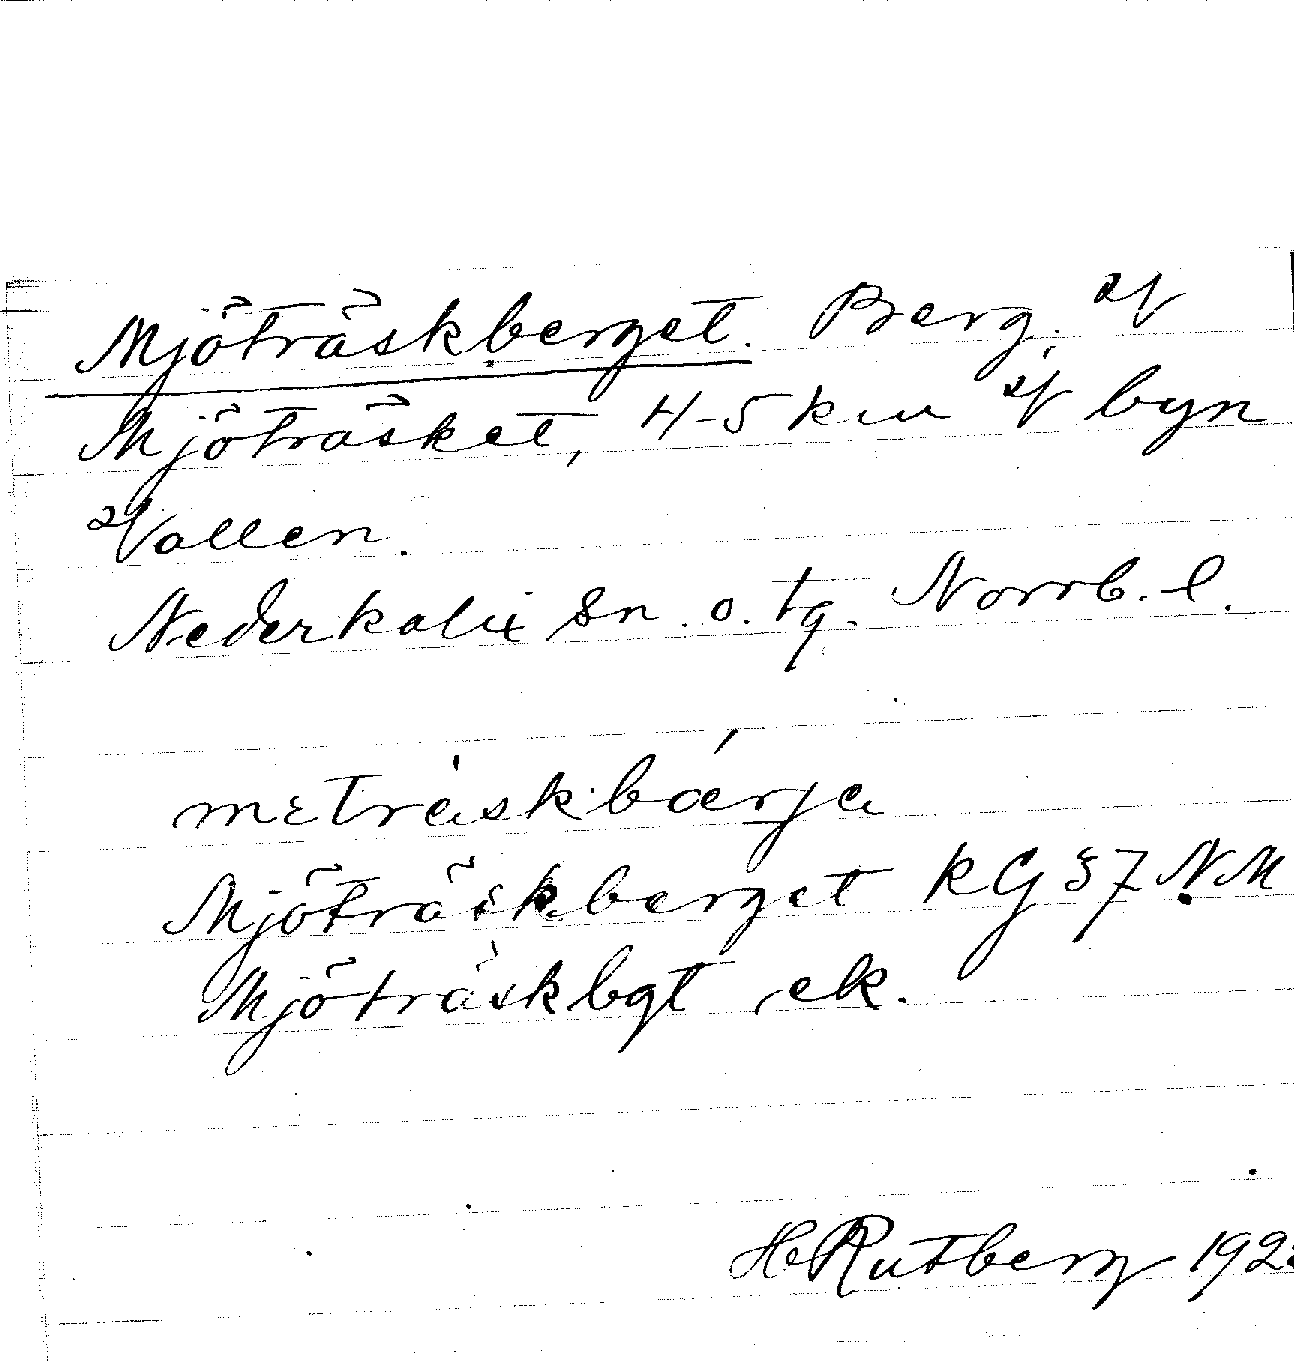 Mjöträskberget. Berg. V
Mjöträsket, 4-5 km V byn
Vallen.
Nederkalix sn. o. tg. Norrb. l.
mɛtràskbǽrja
Mjöträskberget KG 37 NM
Mjöträskbgt ek.
H Rutberg 192